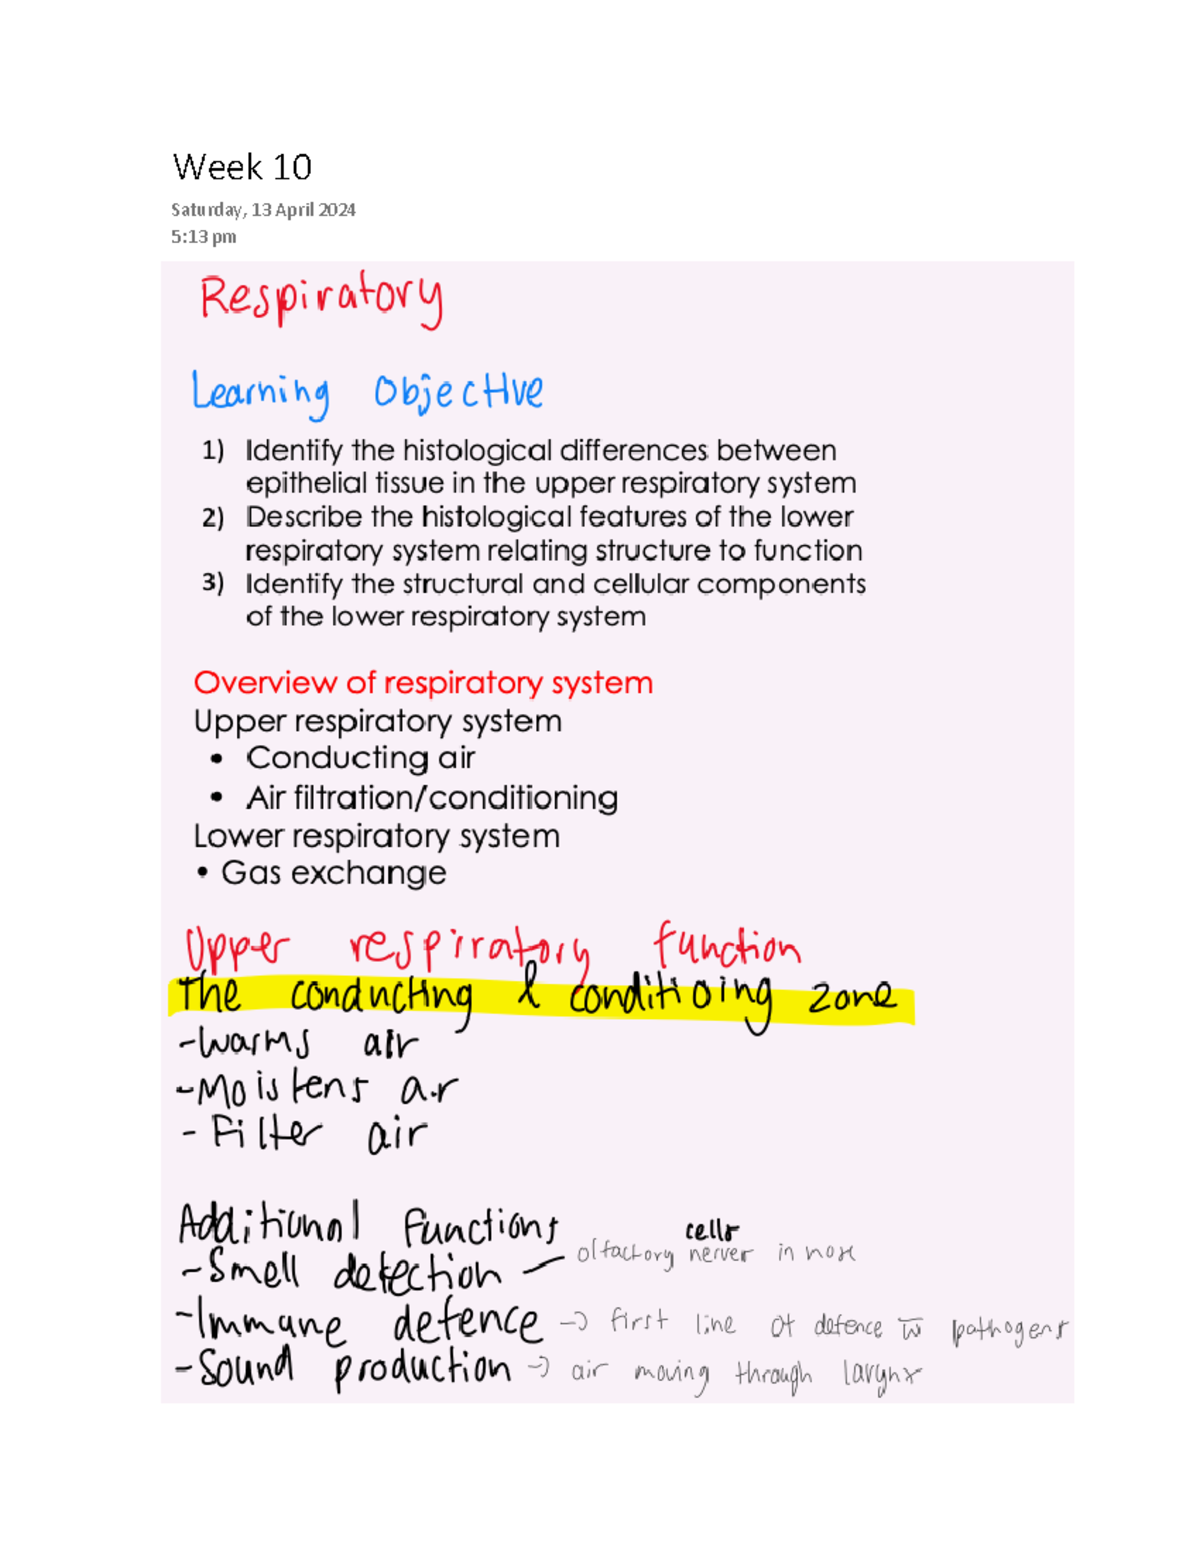 Week 10
Saturday, 13 April 2024
5:13 pm
Respiratory
Learning Objective
1) Identify the histological differences between
epithelial tissue in the upper respiratory system
2) Describe the histological features of the lower
respiratory system relating structure to function
3) Identify the structural and cellular components
of the lower respiratory system
Overview of respiratory system
Upper respiratory system
• Conducting air
• Air filtration/conditioning
Lower respiratory system
• Gas exchange
Upper respiratory function
The conducting & conditioing zone
-Warms air
-Moistens air
- Filter air
Additional functions
cells
-Smell detection — olfactory nerver in nose
-Immune defence → first line of defence to pathogens
-Sound production → air moving through larynx